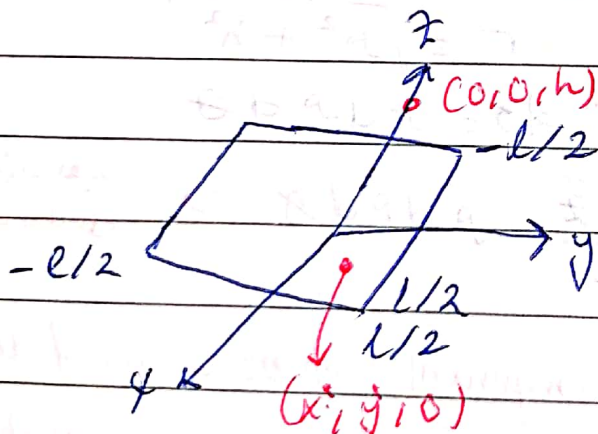 z
(0,0,h)
-l/2
y
-l/2
l/2
l/2
x
(x', y', 0)